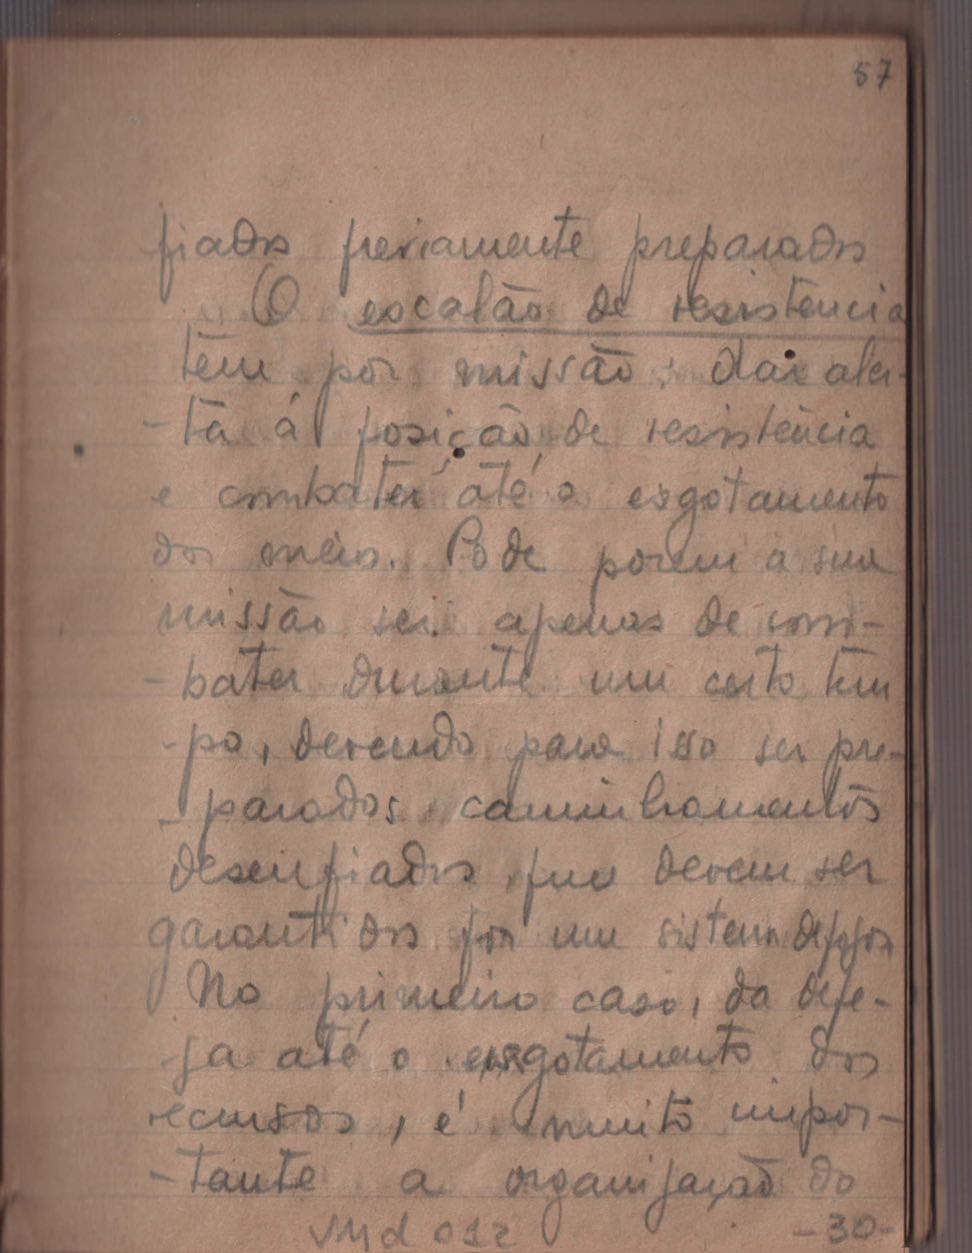 57
fiados previamente preparados
O escalão de resistência
têm por missão: dar aler-
-ta á posição de resistência
e combater até o esgotamento
dos meios. Pode porem a sua
missão ser apenas de com-
-bater durante um certo tem
-po, devendo para isso ser pre-
-parados caminhamentos
desenfiados, que devem ser
garantidos por um sistema de fogos
No primeiro caso, da defe-
sa até o esgotamento dos
recursos, é muito impor-
-tante a organização do
-30-